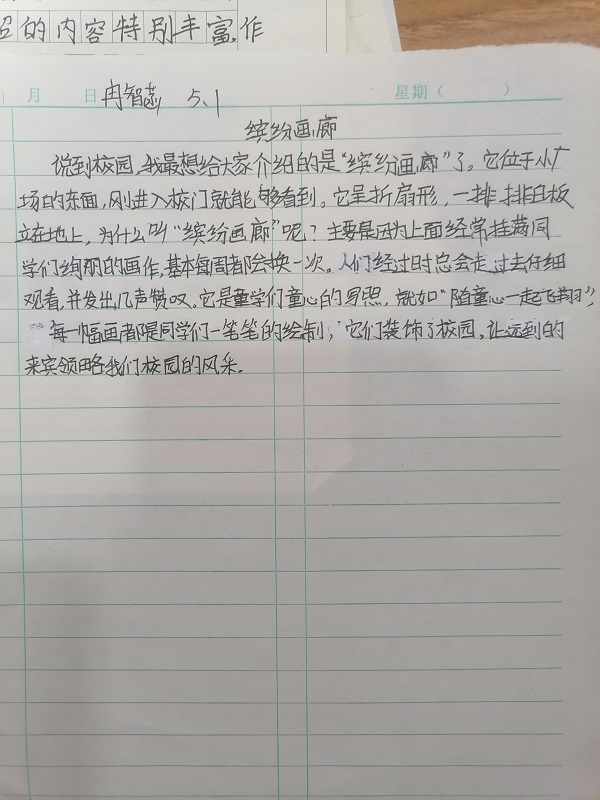 的内容特别丰富,作
月 日 冉智 5.1 星期( )
缤纷画廊
说到校园,我最想给大家介绍的是“缤纷画廊”了。它位于小广
场的东面,刚进入校门就能够看到。它呈折扇形,一排排白板
立在地上,为什么叫“缤纷画廊”呢?主要是因为上面经常挂满同
学们绚丽的画作,基本每周都会换一次。人们经过时总会走过去仔细
观看,并发出几声赞叹。它是童学们童心的写照,就如“随童心一起飞翔”,
每一幅画都是同学们一笔笔的绘制,它们装饰了校园,让远到的
来宾领略我们校园的风采。